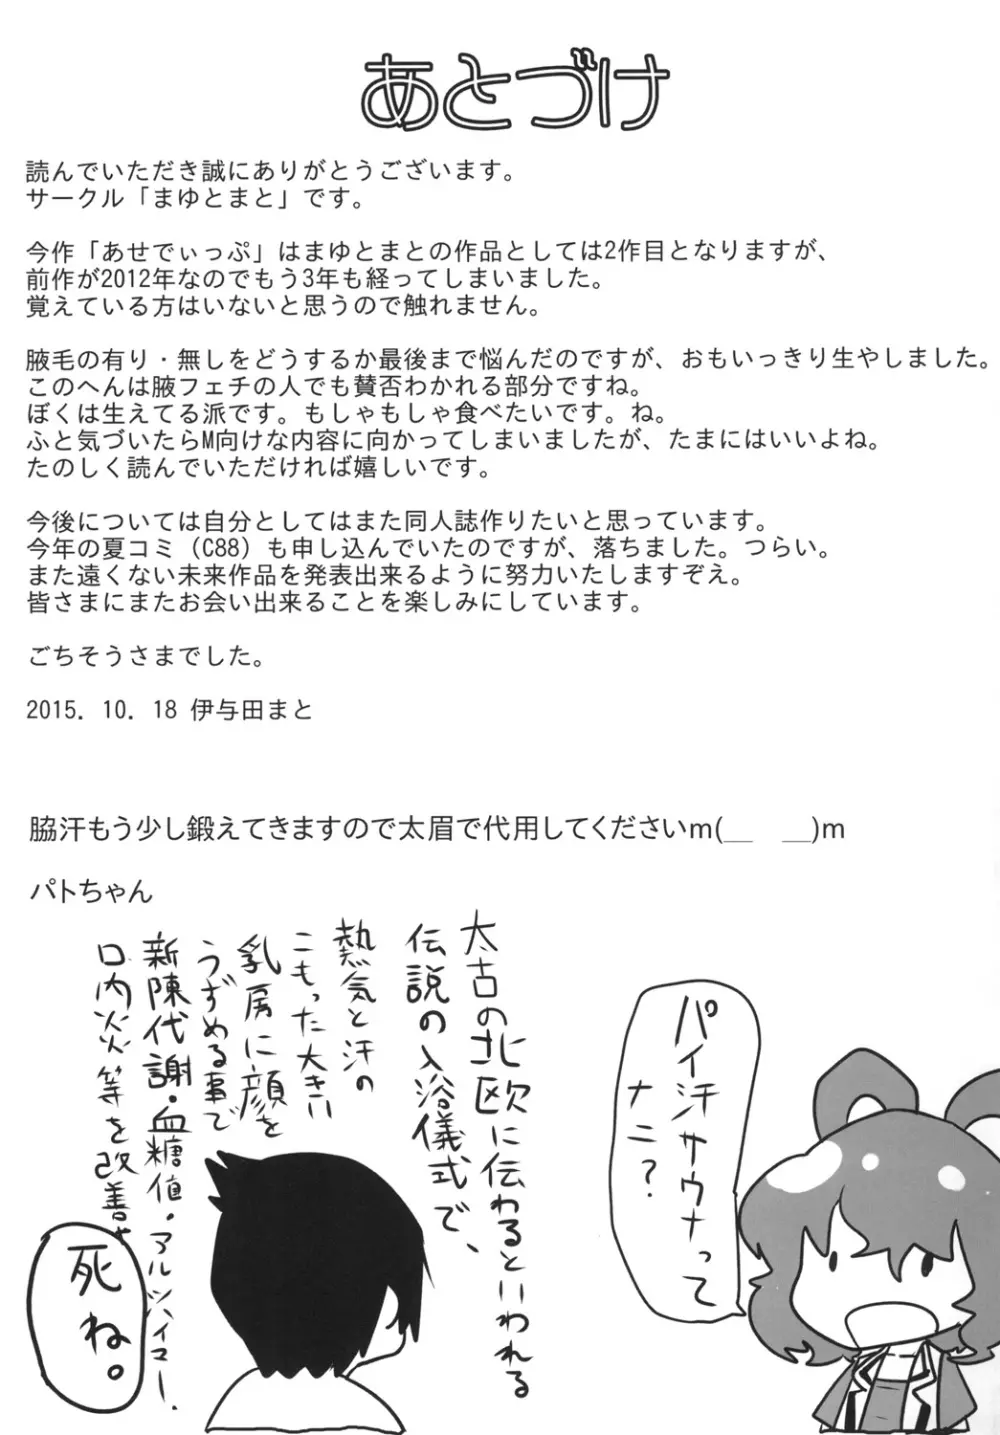 あとづけ
読んでいただき誠にありがとうございます。
サークル「まゆとまと」です。
今作「あせでぃっぷ」はまゆとまとの作品としては2作目となりますが、
前作が2012年なのでもう3年も経ってしまいました。
覚えている方はいないと思うので触れません。
腋毛の有り・無しをどうするか最後まで悩んだのですが、おもいっきり生やしました。
このへんは腋フェチの人でも賛否わかれる部分ですね。
ぼくは生えてる派です。もしゃもしゃ食べたいです。ね。
ふと気づいたらM向けな内容に向かってしまいましたが、たまにはいいよね。
たのしく読んでいただければ嬉しいです。
今後については自分としてはまた同人誌作りたいと思っています。
今年の夏コミ（C88）も申し込んでいたのですが、落ちました。つらい。
また遠くない未来作品を発表出来るように努力いたしますぞえ。
皆さまにまたお会い出来ることを楽しみにしています。
ごちそうさまでした。
2015．10．18 伊与田まと
脇汗もう少し鍛えてきますので太眉で代用してくださいm(__　__)m
パトちゃん
パイ汗サウナって
ナニ？
太古の北欧に伝わるといわれる
伝説の入浴儀式で、
熱気と汗の
こもった大きい
乳房に顔を
うずめる事で
新陳代謝・血糖値・アルツハイマー・
口内炎等を改善
死ね。